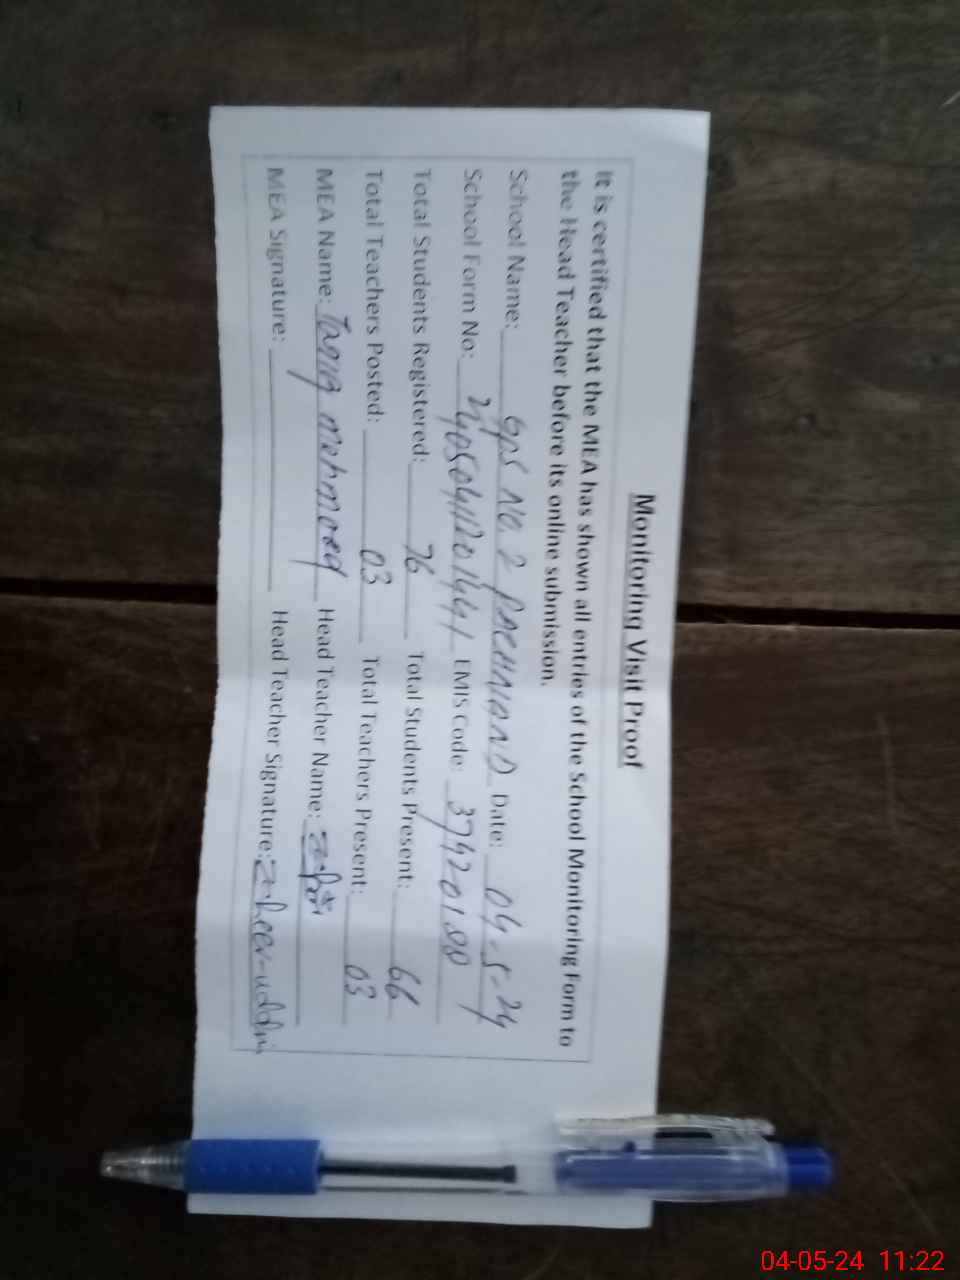 Monitoring Visit Proof
It is certified that the MEA has shown all entries of the School Monitoring Form to
the Head Teacher before its online submission.
School Name: GPS No. 2 PACHNAND Date: 04-5-24
School Form No: EMIS Code: 37420188
Total Students Registered: 76 Total Students Present: 66
Total Teachers Posted: 03 Total Teachers Present: 03
MEA Name: Tariq mehmood Head Teacher Name:
MEA Signature: Head Teacher Signature: Zaheer-uddin
04-05-24 11:22